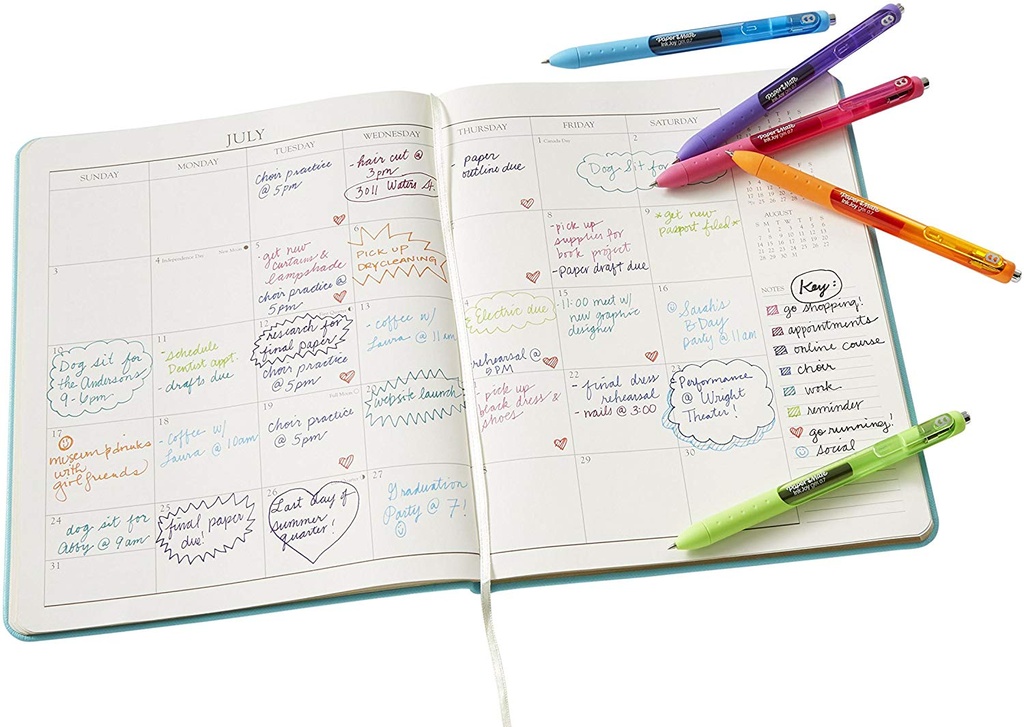 JULY
SUNDAY
MONDAY
TUESDAY
WEDNESDAY
THURSDAY
FRIDAY
SATURDAY
choir practice
@ 5pm
- hair cut @
3pm
3011 Waters St.
- paper
outline due
1 Canada Day
2
Dog Sit for
3
4 Independence Day
New Moon
5
- get new
curtains &
lampshade
choir practice @
5pm
6
PICK UP
DRYCLEANING
8
- pick up
supplies for
book project
- paper draft due
9
*get new
passport filed*
10
Dog sit for
the Andersons
9-6pm
11
- schedule
Dentist appt.
- drafts due
12
research for
final paper
choir practice
@ 5pm
13
- coffee w/
Laura @ 11am
Electric due
rehearsal @
5PM
15
11:00 meet w/
new graphic
designer
16
Sarah's
B-Day
party @ 11am
17
museum & drinks
with
girlfriends
18
- coffee w/
Laura @ 10am
19
Full Moon
choir practice
@ 5pm
20
website launch
- pick up
black dress &
shoes
22
- final dress
rehearsal
- nails @ 3:00
23
Performance
@ Wright
Theater!
24
dog sit for
Abby @ 9am
25
final paper
due!
26
Last day of
summer
quarter!
27
Graduation
Party @ 7!
29
30
31
AUGUST
S M T W T F S
NOTES
Key:
go shopping!
appointments
online course
choir
work
reminder
go running!
social
Paper Mate
InkJoy gel 0.7
Paper Mate
InkJoy gel 0.7
Paper Mate
InkJoy gel 0.7
Paper Mate
InkJoy gel 0.7
Paper Mate
InkJoy gel 0.7